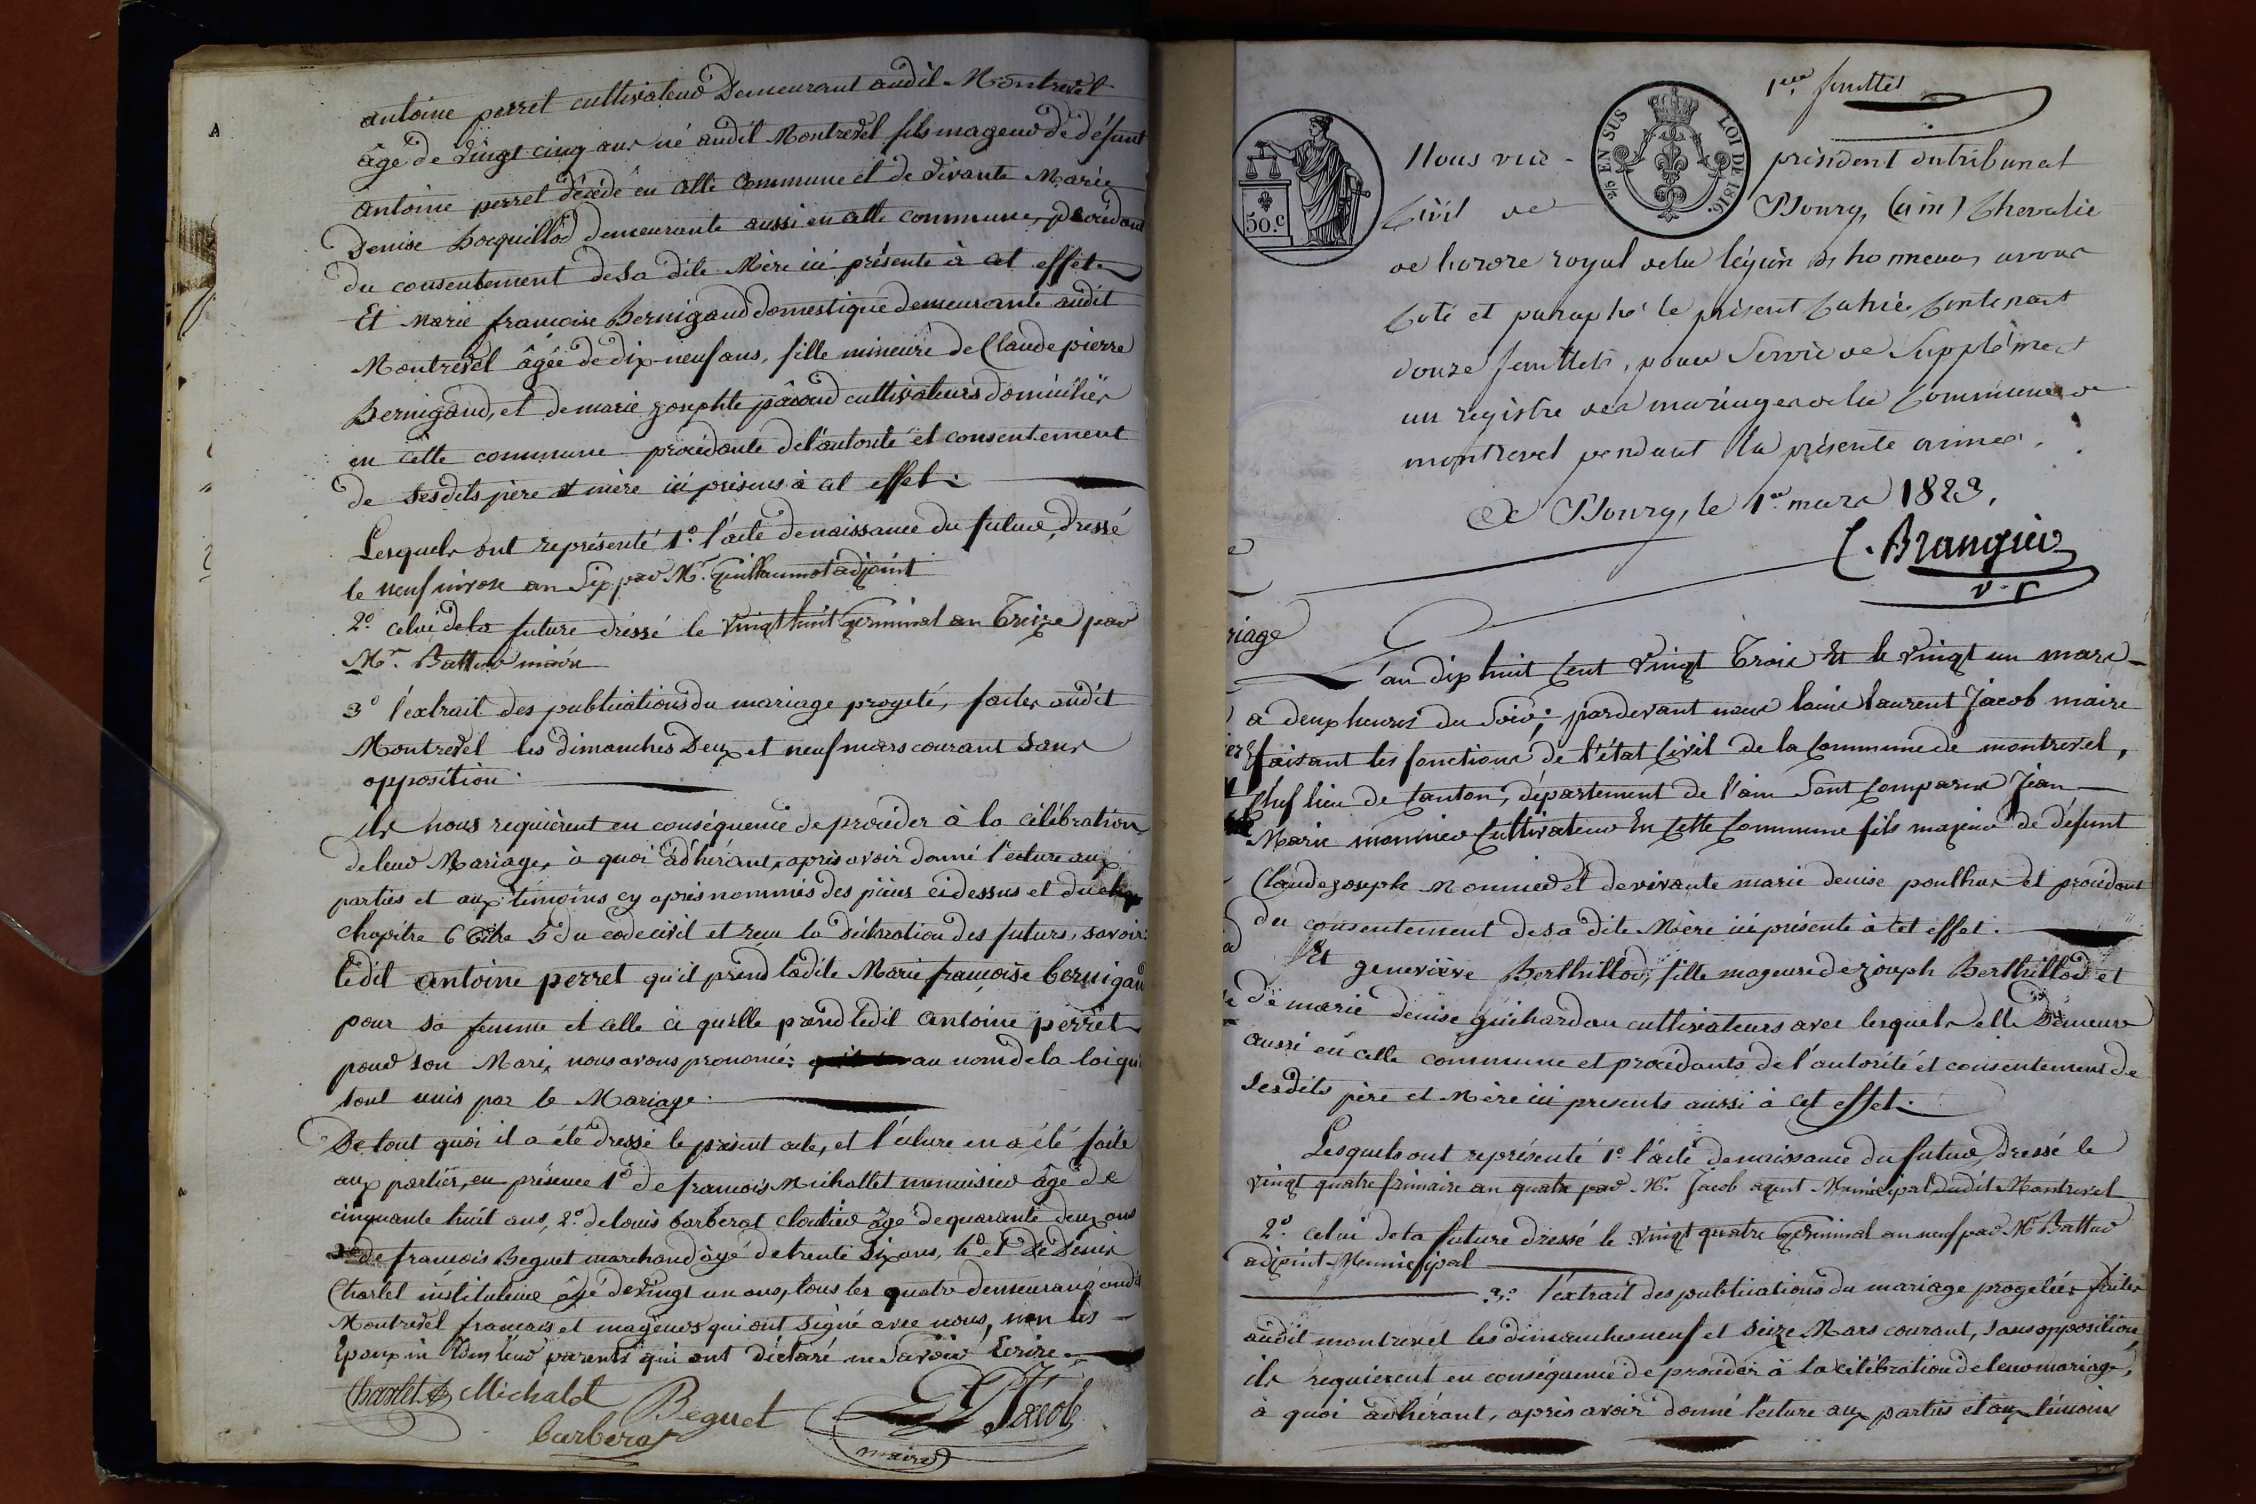 antoine perret cultivateur demeurant audit Montrevel
âgé de vingt cinq ans né audit Montrevel fils mageur de défunt
antoine perret décédé en cette commune et de vivante Marie
denise Bocquillod demeurante aussi en cette commune, procédant
du consentement de sa dite Mère ici présente à cet effet
Et Marie françoise Bernigaud domestique demeurante audit
Montrevel âgée de dix-neuf ans, fille mineure de Claude pierre
Bernigaud, et de marie zosephte pacoud cultivateurs domiciliés
en cette commune procédante de l'autorité et consentement
de sesdits père et mère ici présens à cet effet.
Lesquels ont représenté 1º. l'acte de naissance du futur, dressé
le neuf nivose an Six par Mr. Guillaumot adjoint
2º. celui de la future dressé le vingt huit Germinal an Treize par
Mr. Battur maire
3º l'extrait des publications du mariage progeté, faites audit
Montrevel les dimanches Deux et neuf mars courant sans
opposition.
ils nous requièrent en conséquence de procéder à la célébration
de leur Mariage, à quoi adhérant, après avoir donné l'ecture aux
parties et aux témoins cy après nommés des pièces ci dessus et du
chapitre 6 titre 5 du code civil et reçu la déclaration des futurs, savoir:
ledit antoine perret qu'il prend ladite Marie françoise bernigaud
pour sa femme et celle ci quelle prend ledit antoine perret
pour son Mari, nous avons prononcé: au nom de la loi qu'
sont unis par le Mariage.
De tout quoi il a été dressé le présent acte, et l'ecture en a été faite
aux parties, en présence 1º de françois Michallet menuisier âgé de
cinquante huit ans, 2º. de louis barberat cloutier âgé de quarante deux ans
de francois Beguet marchand âgé de trente Six ans, et de Denis
Charlet instituteur âgé de vingt un ans, tous les quatre demeurans audit
Montrevel francais et mageurs qui ont signé avec nous, non les
Epoux ni leur parents qui ont déclaré ne Savoir Ecrire.
Charlet Michalet Beguet Jacob
barberat maire
1er. feuillet
50.c
25 EN SUS
LOI DE 1816.
Nous vice président du tribunal
Civil de Bourg, (ain) Chevalier
de l'ordre royal de la légion d'honneur, avons
Coté et paraphé le présent Cahier Contenant
douze feuillets, pour Servir de Supplément
au registre des mariages de la Commune de
montrevel pendant la présente année.
A Bourg, le 1er. mars 1823.
C. Brangier
v. p
riage
l'an dix huit Cent vingt Trois Et le vingt un mars
a deux heures du Soir; pardevant nous louis laurent Jacob maire
faisant les fonctions de l'état Civil de la Commune de montrevel,
Chef lieu de Canton, département de l'ain Sont Comparus Jean
Marie monnier Cultivateur En Cette Commune fils majeur de défunt
Claude zoseph Monnier et de vivante marie denise poulhas et procédant
du consentement de sa dite Mère ici présente à cet effet.
Et geneviève Berthillod, fille mageure de zoseph Berthillod et
de marie denise guichardan cultivateurs avec lesquels elle Demeure
aussi en cette commune et procédants de l'autorité et consentement de
sesdits père et Mère ici presents aussi à cet effet.
Lesquels ont représenté 1º. l'acte de naissance du futur, dressé le
vingt quatre frimaire an quatre par Mr. Jacob agent Municipal dudit Montrevel
2º. celui de la future dressé le vingt quatre Germinal an neuf par Mr Battur
adjoint Municipal
3º. l'extrait des publications du mariage progetées faites
audit montrevel les dimanches neuf et seize Mars courant, sans opposition,
ils requierent en conséquence de procéder à la célébration de leur mariage,
à quoi adhérant, après avoir donné l'ecture aux parties et aux témoins